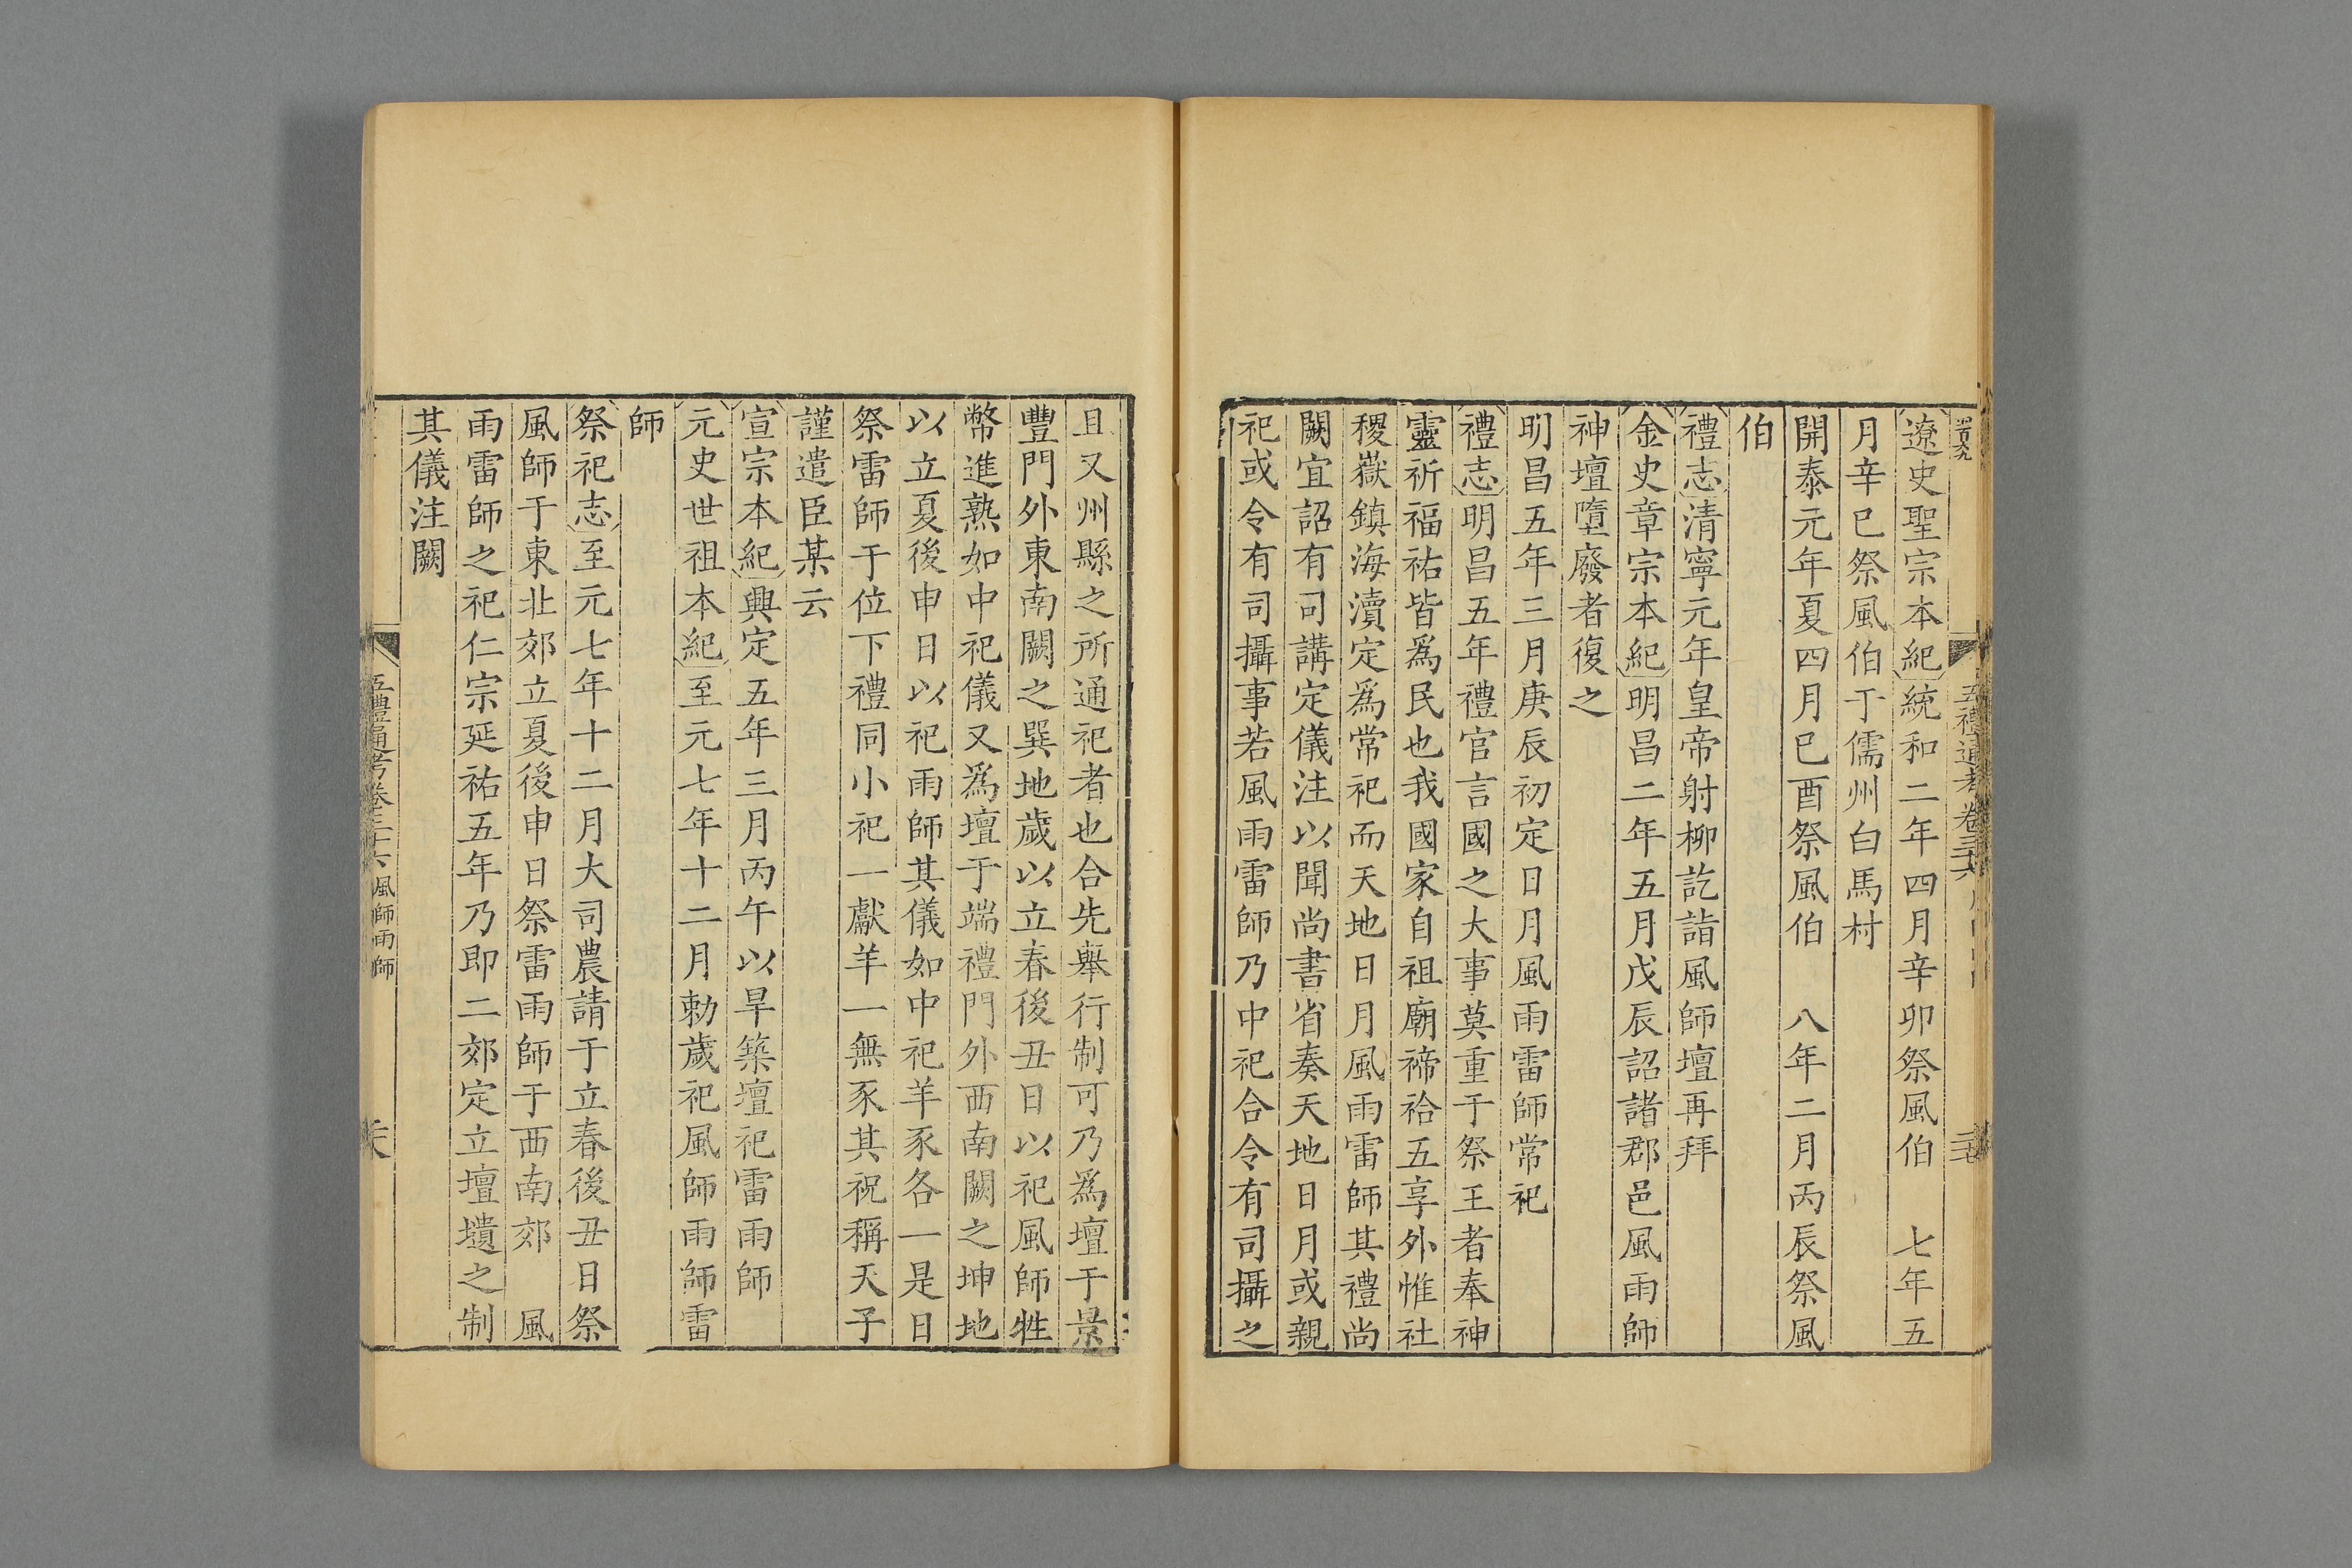 遼史聖宗本紀統和二年四月辛卯祭風伯　七年五
月辛巳祭風伯于儒州白馬村
開泰元年夏四月巳酉祭風伯　八年二月丙辰祭風
伯
禮志清寧元年皇帝射柳訖詣風師壇再拜
金史章宗本紀明昌二年五月戊辰詔諸郡邑風雨師
神壇墮廢者復之
明昌五年三月庚辰初定日月風雨雷師常祀
禮志明昌五年禮官言國之大事莫重于祭王者奉神
靈祈福祐皆爲民也我國家自祖廟禘祫五享外惟社
稷嶽鎮海瀆定爲常祀而天地日月風雨雷師其禮尚
闕宜詔有司講定儀注以聞尚書省奏天地日月或親
祀或令有司攝事若風雨雷師乃中祀合令有司攝之
且又州縣之所通祀者也合先舉行制可乃爲壇于景
豐門外東南闕之巽地歲以立春後丑日以祀風師牲
幣進熟如中祀儀又爲壇于端禮門外西南闕之坤地
以立夏後申日以祀雨師其儀如中祀羊豕各一是日
祭雷師于位下禮同小祀一獻羊一無豕其祝稱天子
謹遣臣某云
宣宗本紀興定五年三月丙午以旱築壇祀雷雨師
元史世祖本紀至元七年十二月勅歲祀風師雨師雷
師
祭祀志至元七年十二月大司農請于立春後丑日祭
風師于東北郊立夏後申日祭雷雨師于西南郊　風
雨雷師之祀仁宗延祐五年乃即二郊定立壇壝之制
其儀注闕
五禮通考卷三十六 風師雨師